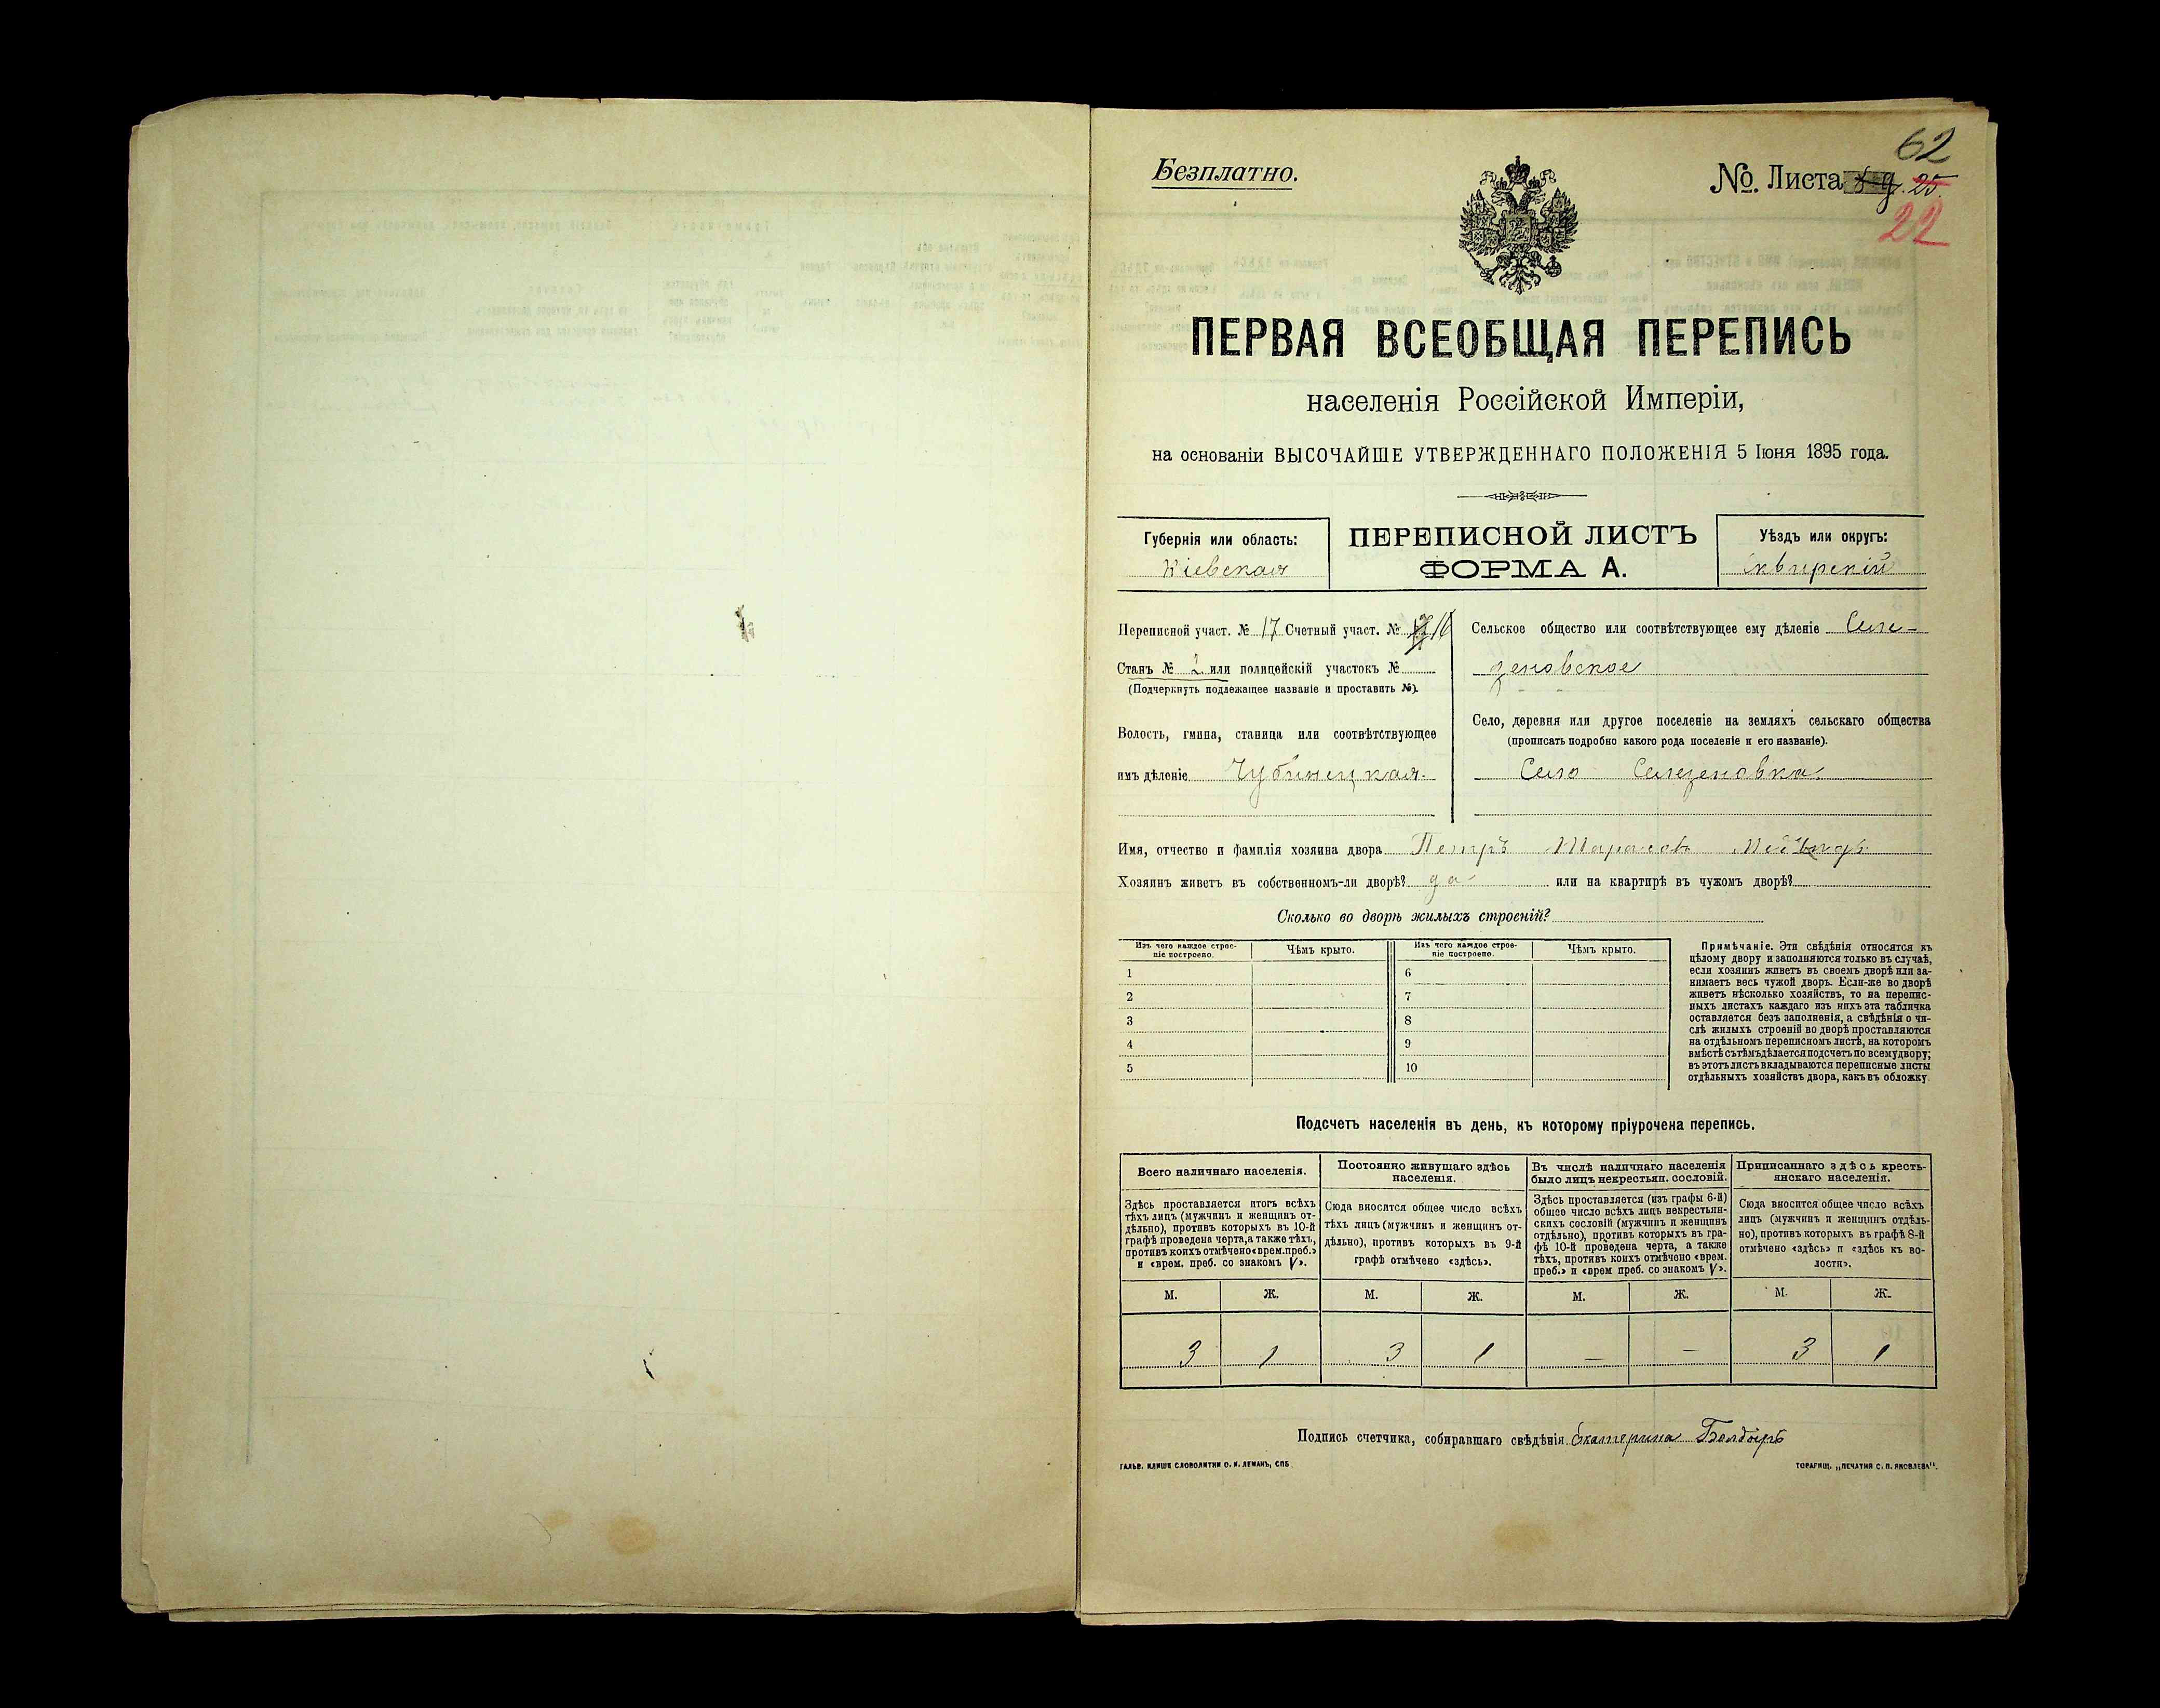 62
Безплатно.
№. Листа 25.
22
ПЕРВАЯ ВСЕОБЩАЯ ПЕРЕПИСЬ
населенія Россійской Имперіи,
на основаніи ВЫСОЧАЙШЕ УТВЕРЖДЕННАГО ПОЛОЖЕНІЯ 5 Іюня 1895 года.
Губернія или область:
Кіевская
ПЕРЕПИСНОЙ ЛИСТЪ
ФОРМА А.
Уѣздъ или округъ:
Сквирскій
Переписной участ. № 17 Счетный участ. № 16
Станъ № 2 или полицейскій участокъ №
(Подчеркнуть подлежащее названіе и проставить №).
Волость, гмина, станица или соотвѣтствующее
имъ дѣленіе Чубинецкая.
Сельское общество или соотвѣтствующее ему дѣленіе Селе-
зеновское
Село, деревня или другое поселеніе на земляхъ сельскаго общества
(прописать подробно какого рода поселеніе и его названіе).
Село Селезеновка.
Имя, отчество и фамилія хозяина двора Петръ Тарасовъ
Хозяинъ живетъ въ собственномъ-ли дворѣ? да или на квартирѣ въ чужомъ дворѣ?
Сколько во дворѣ жилыхъ строеній?
Изъ чего каждое строе-
ніе построено.
Чѣмъ крыто.
Изъ чего каждое строе-
ніе построено.
Чѣмъ крыто.
1 6
2 7
3 8
4 9
5 10
Примѣчаніе. Эти свѣдѣнія относятся къ
цѣлому двору и заполняются только въ случаѣ,
если хозяинъ живетъ въ своемъ дворѣ или за-
нимаетъ весь чужой дворъ. Если-же во дворѣ
живетъ нѣсколько хозяйствъ, то на перепис-
ныхъ листахъ каждаго изъ нихъ эта табличка
оставляется безъ заполненія, а свѣдѣнія о чи-
слѣ жилыхъ строеній во дворѣ проставляются
на отдѣльномъ переписномъ листѣ, на которомъ
вмѣстѣ съ тѣмъ дѣлается подсчетъ по всему двору;
въ этотъ листъ вкладываются переписные листы
отдѣльныхъ хозяйствъ двора, какъ въ обложку.
Подсчетъ населенія въ день, къ которому пріурочена перепись.
Всего наличнаго населенія.
Здѣсь проставляется итогъ всѣхъ
тѣхъ лицъ (мужчинъ и женщинъ от-
дѣльно), противъ которыхъ въ 10-й
графѣ проведена черта, а также тѣхъ,
противъ коихъ отмѣчено «врем. преб.»
и «врем. преб. со знакомъ V».
Постоянно живущаго здѣсь
населенія.
Сюда вносится общее число всѣхъ
тѣхъ лицъ (мужчинъ и женщинъ от-
дѣльно), противъ которыхъ въ 9-й
графѣ отмѣчено «здѣсь».
Въ числѣ наличнаго населенія
было лицъ некрестьян. сословій.
Здѣсь проставляется (изъ графы 6-й)
общее число всѣхъ лицъ некрестьян-
скихъ сословій (мужчинъ и женщинъ
отдѣльно), противъ которыхъ въ гра-
фѣ 10-й проведена черта, а также
тѣхъ, противъ коихъ отмѣчено «врем.
преб.» и «врем преб. со знакомъ V».
Приписаннаго здѣсь кресть-
янскаго населенія.
Сюда вносится общее число всѣхъ
лицъ (мужчинъ и женщинъ отдѣль-
но), противъ которыхъ въ графѣ 8-й
отмѣчено «здѣсь» и «здѣсь къ во-
лости».
М. Ж. М. Ж. М. Ж. М. Ж.
3 1 3 1 — — 3 1
Подпись счетчика, собиравшаго свѣдѣнія Екатерина Болдырь
ГАЛЬВ. КЛИШЕ СЛОВОЛИТНИ О. И. ЛЕМАНЪ, СПБ.
ТОВАРИЩ. „ПЕЧАТНЯ С. П. ЯКОВЛЕВА".